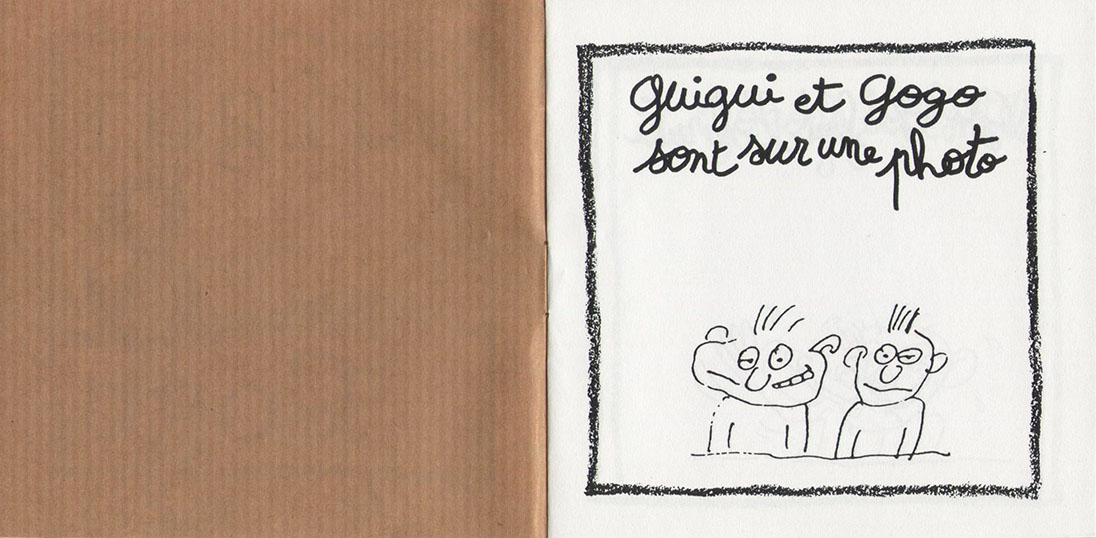 Guigui et Gogo
sont sur une photo